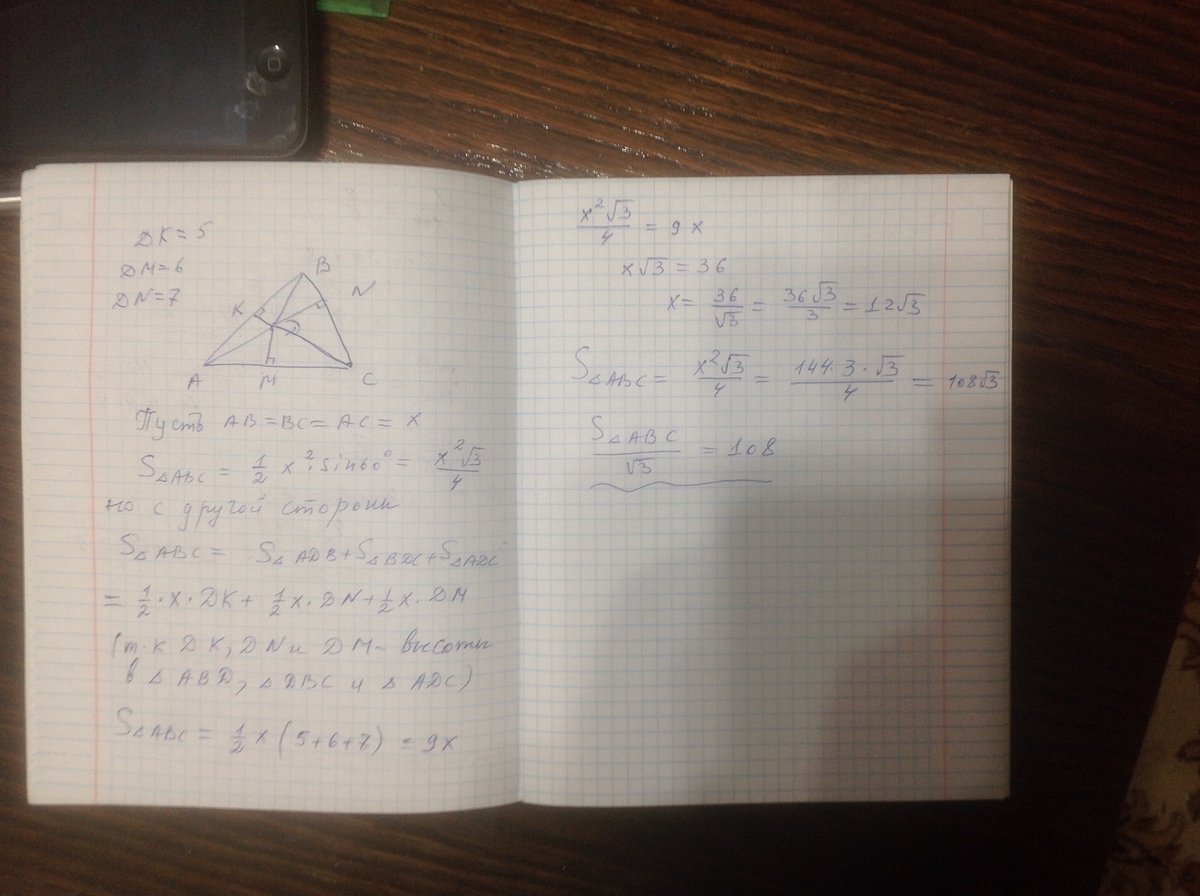 DK = 5
DM = 6
DN = 7
B
N
K
D
A M C
Пусть AB = BC = AC = x
S△ABC = 1/2 x²·sin60° = x²√3/4
но с другой стороны
S△ABC = S△ADB + S△BDC + S△ADC
= 1/2·x·DK + 1/2 x·DN + 1/2 x·DM
(т.к DK, DN и DM - высоты
в △ABD, △DBC и △ADC)
S△ABC = 1/2 x (5+6+7) = 9x
x²√3/4 = 9x
x√3 = 36
x = 36/√3 = 36√3/3 = 12√3
S△ABC = x²√3/4 = 144·3·√3/4 = 108√3
S△ABC/√3 = 108